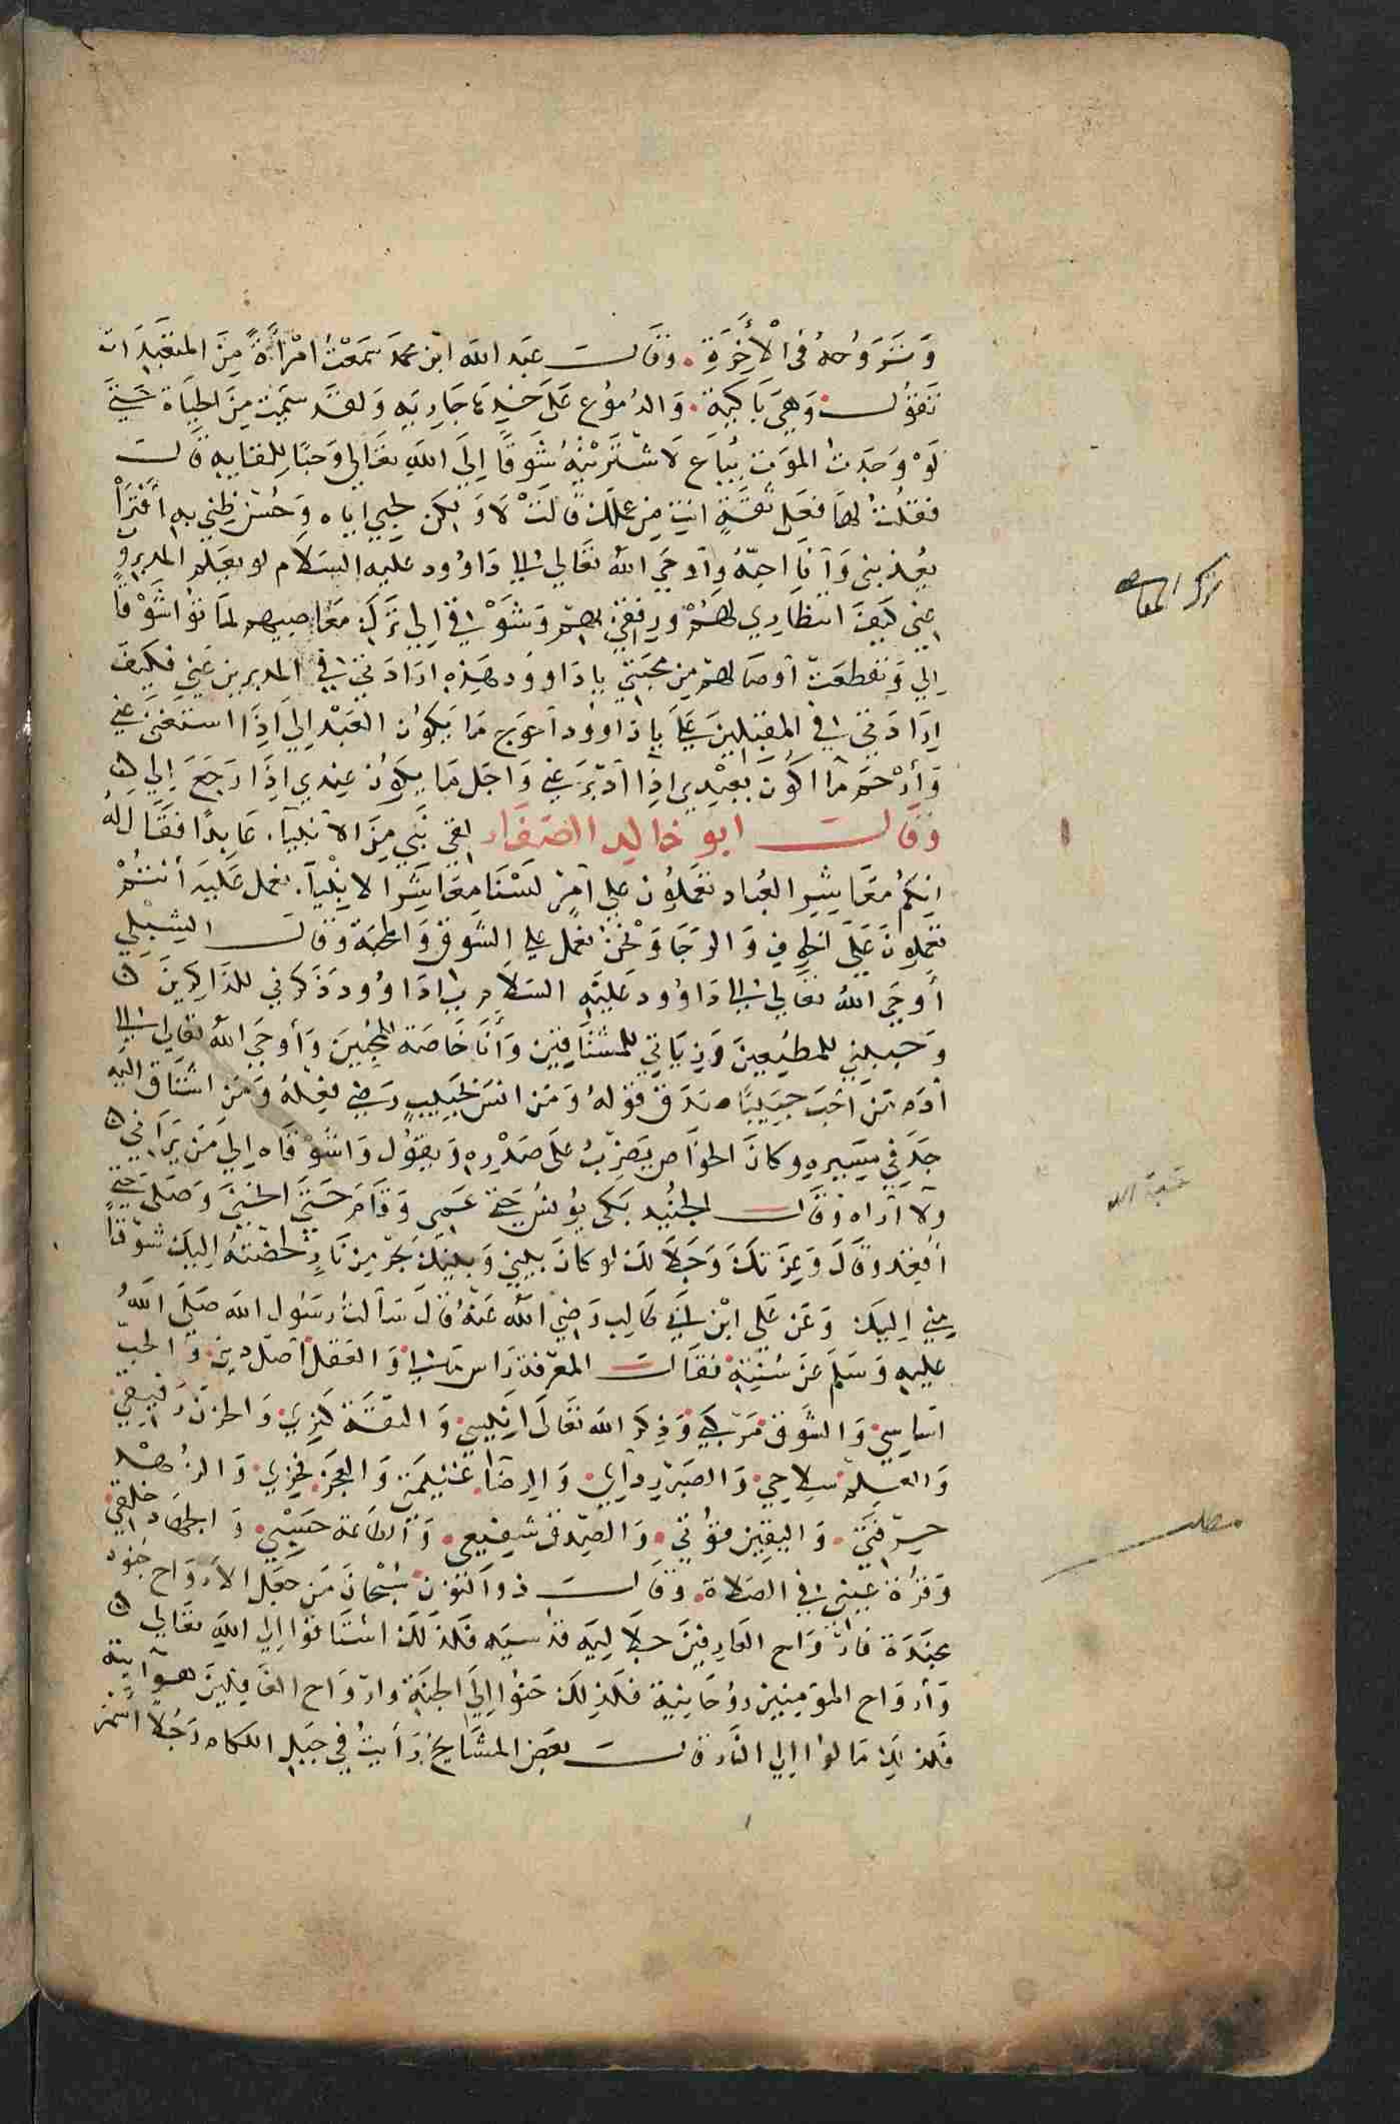 وَسَتَرَوْنَهُ فى الْأَخِرَةِ. وَقَالَ عبد الله ابن محمد سَمعْتُ امْرَأَةً مِنَ المتعَبِّدَات
تَقوُل وَهِيَ بَاكيَة. وَالدُّموُع عَلَى خَدِهَا جَارِيَه وَلقَد سَئِمت مِنَ الحيَاة حَتيَّ
لَوْ وَجَدتُ الموَت يُبَاع لَاشتَرَيْتُهُ شَوقًا اِلَى اللهِ تعَالى وَحبًا لِلقايهِ قَال
فقلتُ لهَا فعَلى ثقَةٍ انتِ مِن عملك قَالَتْ لَا وَلكِن لحبي اياه وَحُسْن ظني بهِ أفَتَراْ
يُعذبنى وَأنَا احبّهُ وَأوحَي الله تعَالي الى دَاوُود عليهِ السَلام لو يعلم المدبرون
عني كيَفَ انتظارِي لهُمْ ورِفقي بهِمْ وَشَوْقي اِلي تَركِ معَاصِيهم لمَاتوُا شَوْقًا
اِلي وَتقطعَت أوصَالهُم مِن محبَتي يادَاوود هَذِه ارَادَتي في المدبرين عَني فكيَف
اِرَادَتي في المقبلينَ عَليَّ يادَاوود أحوَج مَا يَكوُن العَبْد اِليَ اِذَا استغنَى عني
وَأرْحَم مَا اكُونَ بعَبْدِي اذِا أدبَرَ عَني وَاجَل مَا يكوُن عِندي اِذَا رَجَعَ اِلي
وَقَال ابو خالد الصَفار لقي نَبي مِنَ الانبيآء عَابدًا فقَالَ لهُ
اِنكُم معَاشِرِ العُباد تعَملوُن على أمرٍ لسْنَا معَاشرَ الانبْيآء نعمل عَليَه أنتُمْ
تعملونَ عَلى الخوفِ وَالرجَا وَنحْنُ نعمل على الشوق وَالمحبة وقال الشبْلي
أوحَي الله تعَالى الى دَاوُود عَليْهِ السَلَام يادَاوُود ذِكري للذَاكِرينَ
وَجَنتي للمطيُعينَ وَزيَارتي للمشتَاقين وَأنَا خَاصَة للمحُبينَ وَأوحَي الله تعَالى الى
آدَم مَن احَبَ حَبيبًا صَدق قَوْلهُ وَمَن انسَ بحَبيبٍ رَضيَ فعِلهُ وَمَن اشتاق اليَه
جَدَّ في مسَيرهِ وكانَ الخوَاص يضرِبُ على صَدْرهِ وَيقوُل وَاشوْقَاه اِليَ مَن يَرَاني
ولَا أرَاه وقَال الجنُيد بَكى يوُنسُ حَتي عَمىَ وَقَامَ حَتيَّ انحَنيَ وَصَلى حَتي
أُقعِد وقالَ وَعِزَتكَ وَجَلَالك لو كانَ بَينِي وَبينَك بَحر مِن نَارٍ لخضْتهُ اِليكَ شوقًا
مِني اِليَك وَعَن عَلي ابْن ابي طَالِب رَضيَ الله عَنهُ قَالَ سَألتُ رَسُول الله صَلى اللهُ
عليهِ وَسَلم عَن سُنتِه فقَال المعْرفة رَاس مَالي وَالعَقل أصْل ديني وَالحبّ
اسَاسِي وَالشَوق مَركبي وَذِكر الله تعَالى انِيسي وَالثقَة كنزِي وَالحزن رَفيقي
وَالعِلم سِلاحي وَالصَبر رِدآئي وَالرِضَا غنيمَتي وَالعَجز فخَري وَالزُهْد
حِرفَتي. وَاليقين قوُتي. وَالصِدق شفيَعي. وَالطاعَة حَسَبْي. وَالجهَاد خلقي
وَقرُة عَيني في الصَلاة. وَقَال ذواَلنوُن سُبْحَانَ مَن جعَل الأرْوَاح جُنود
مجنَدَة فأروَاح العَارِفينَ جلَالِيَه قدْسِيَه فَلذلَك اشتَاقوُا اِلى الله تعَالي
وَأروَاح المؤمِنين روُحَانِية فَلذلِكَ حَنوُا اِليَ الجنَة وارْوَاح الغَافلينَ هوَآيية
فَلذلِك مَالوُا اِلي النار قال بعَض المشَايخ رَأيتُ في جَبل اللكام رَجُلاً أسْمَر
ترك المعاصي
محبة الله
مطلب